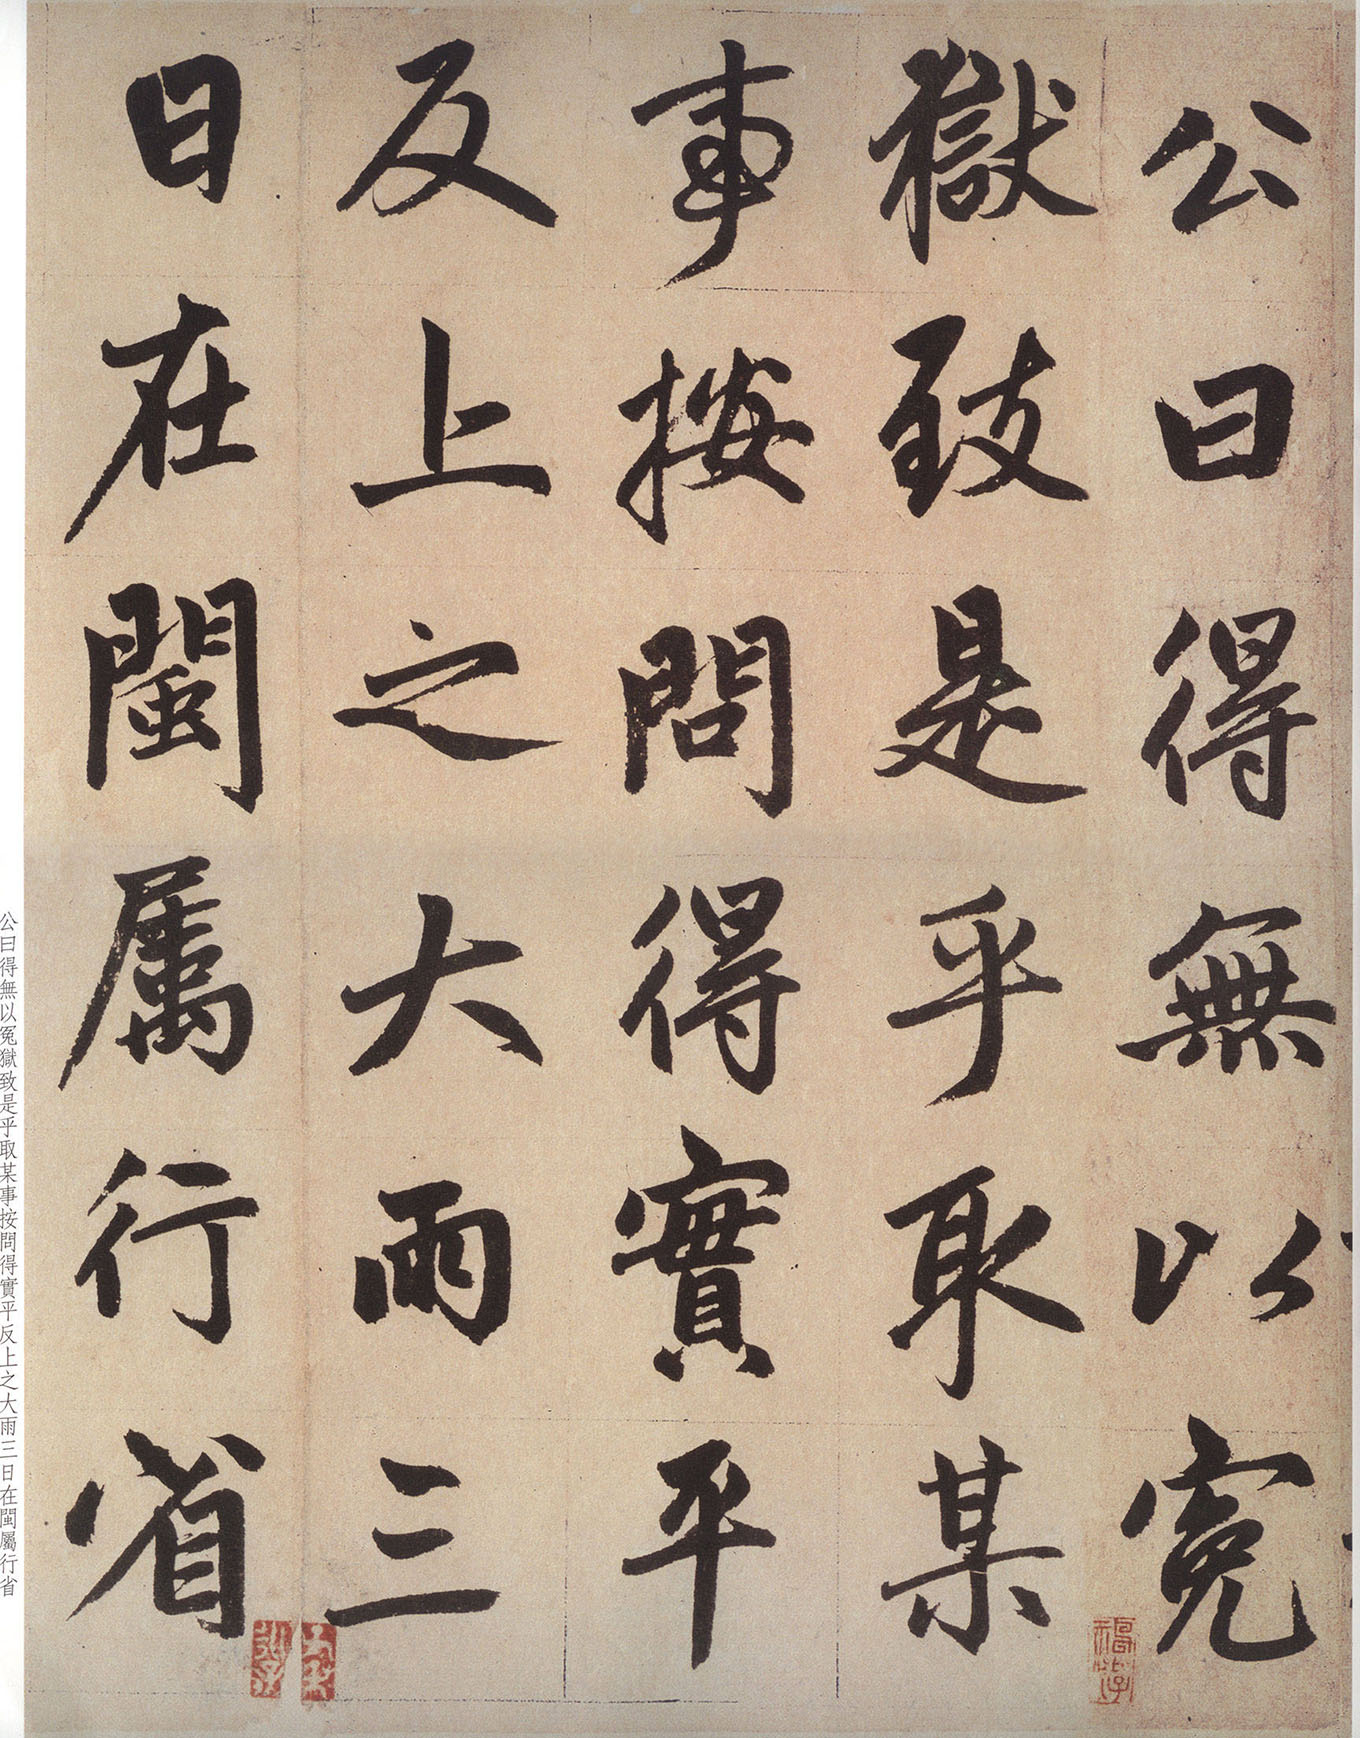 公曰得無以冤
獄致是乎取某
事按問得實平
反上之大雨三
日在閩屬行省
公曰得無以冤獄致是乎取某事按問得實平反上之大雨三日在閩屬行省